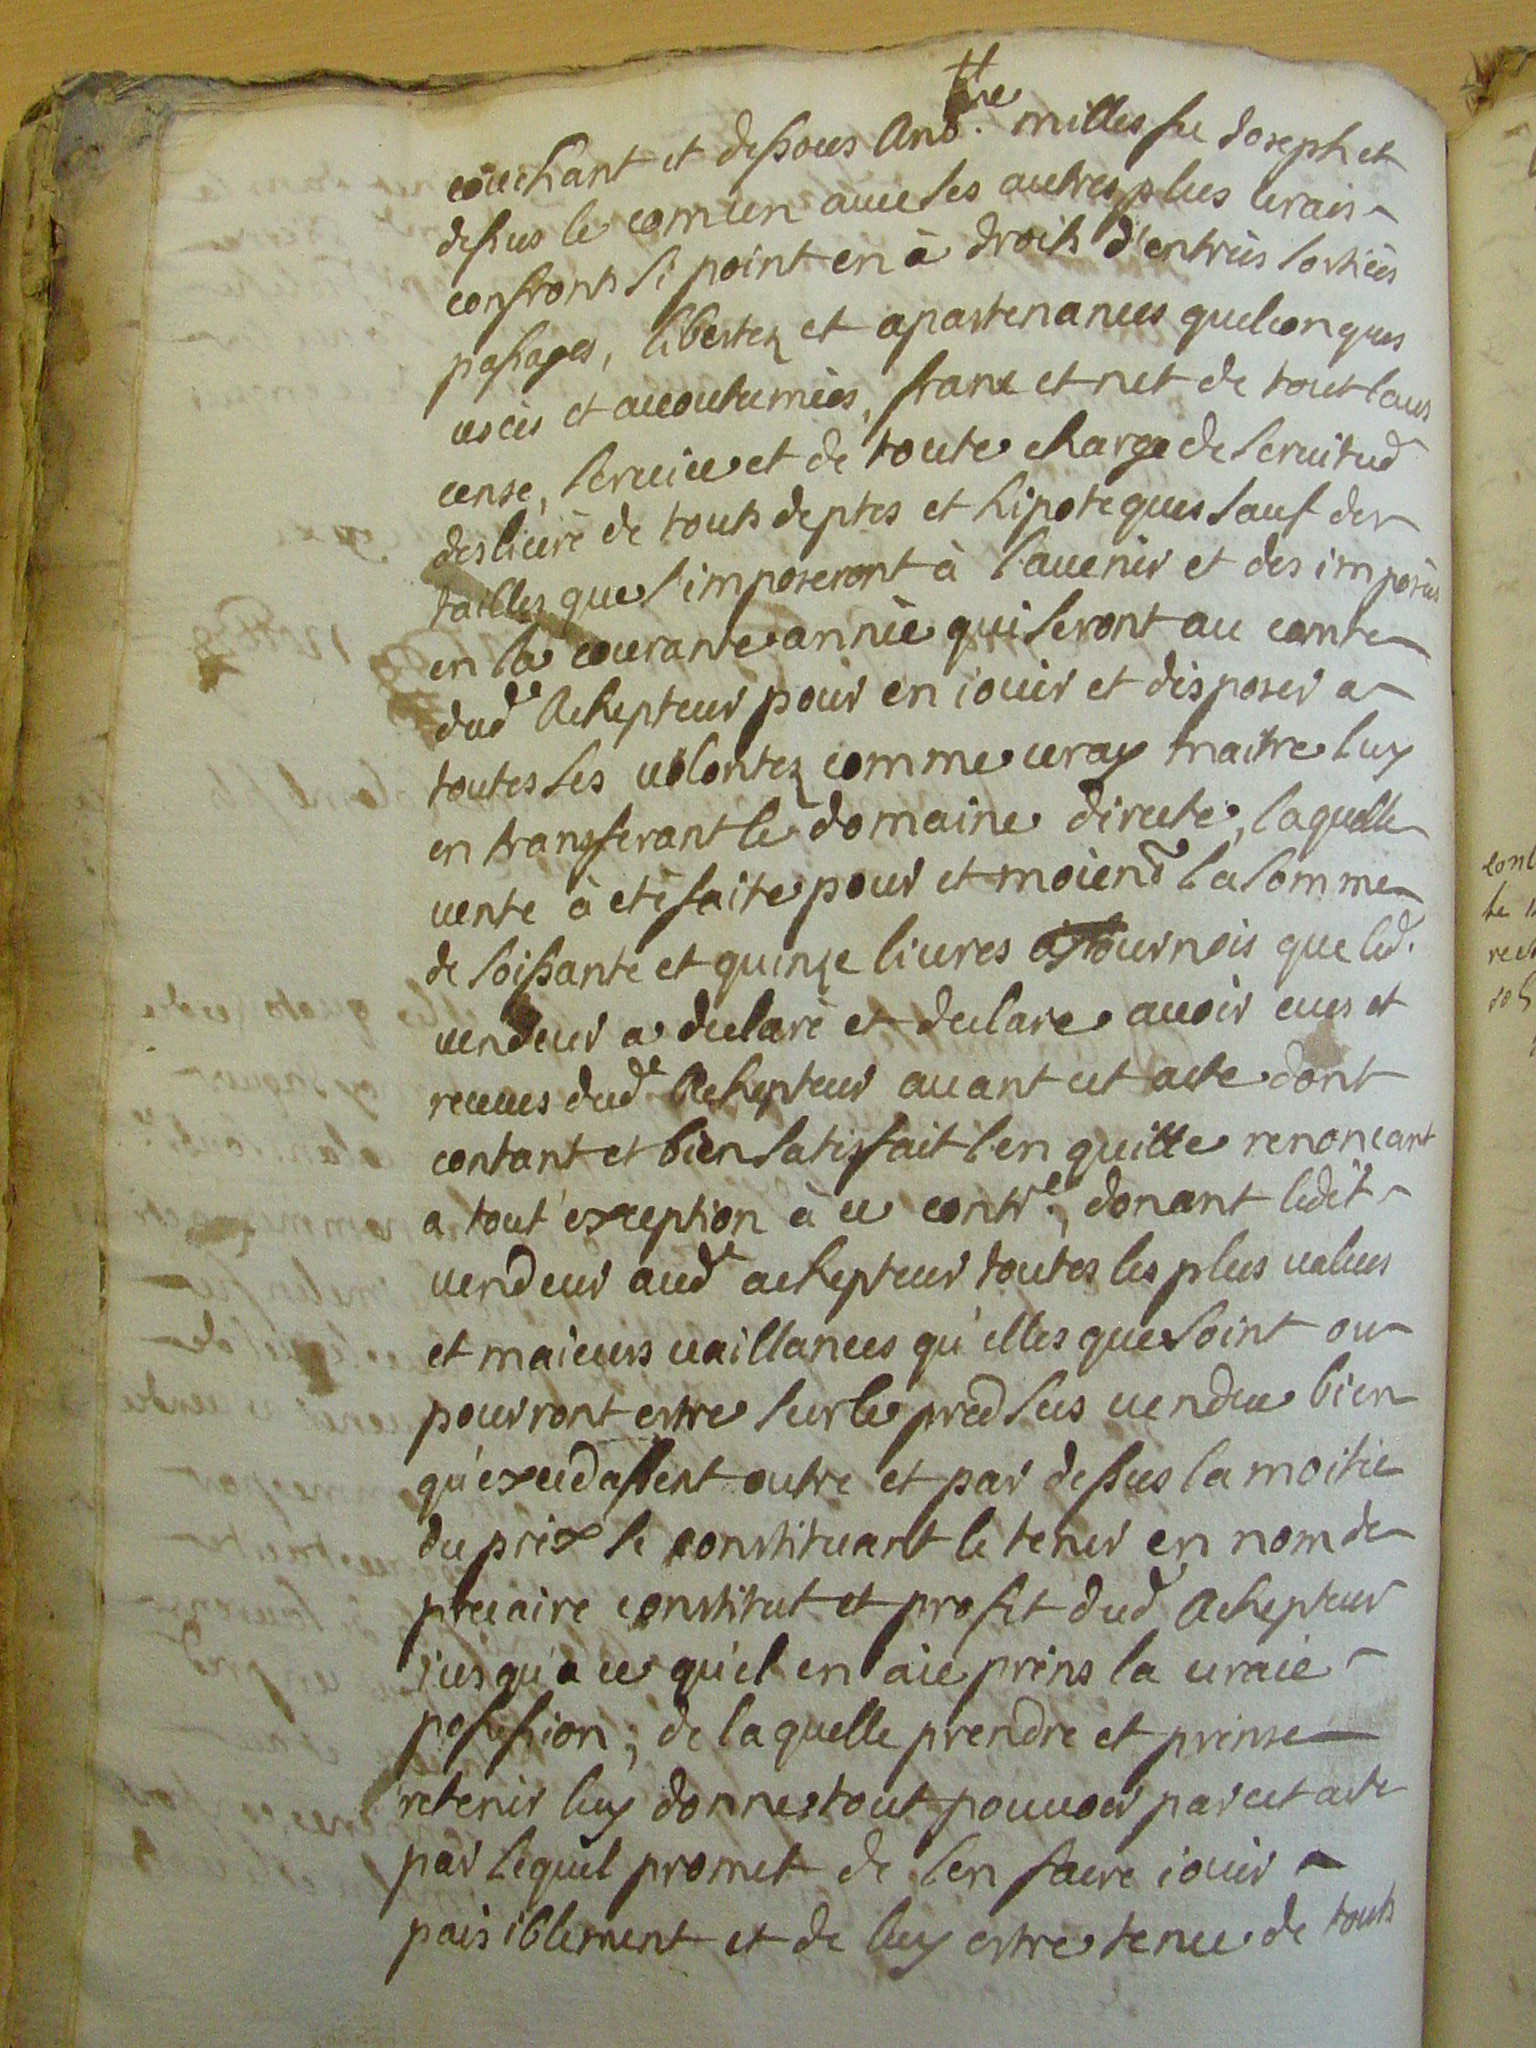 couchant et dessous And.re milles fu Joseph et
dessus le comun avec ses autres plus vrais
confronts si point en à droits d'entrèes sortièes
passages, libertez et apartenances quelconques
usèes et accoutumèes, franc et net de tout laus
cense, service et de toute charge de servitud
deslivrè de touts deptes et hipoteques sauf des
tailles que s'imposeront à l'avenir et des imposèes
en la courante annèe qui seront au comte
dud.e Achepteur pour en iouir et disposer a
toutes ses volontez comme vray maitre luy
en transferant le domaine directe, laquelle
vente à etè faite pour et moiend la somme
de soissante et quinze livres tournois que led.
vendeur a declarè et declare avoir eues et
receues dud.e Achepteur avant cet acte dont
contant et bien satisfait l'en quitte renoncant
a tout exception à ce contr.e, donant ledit
vendeur aud.e achepteur toutes les plus values
et maieurs vaillances qu'elles que soint ou
pourront estre sur le pred sus vendu bien
qu'excedassent outre et par dessus la moitie
du prix se constituant le tenir en nom de
precaire constitut et profit dud.e Achepteur
iusqu'a ce qu'el en aie prins la vraie
possession; de laquelle prendre et prinse
retenir luy donne tout pouvoir par cet acte
par lequel promet de l'en faire iouir
paisiblement et de luy estre tenu de touts